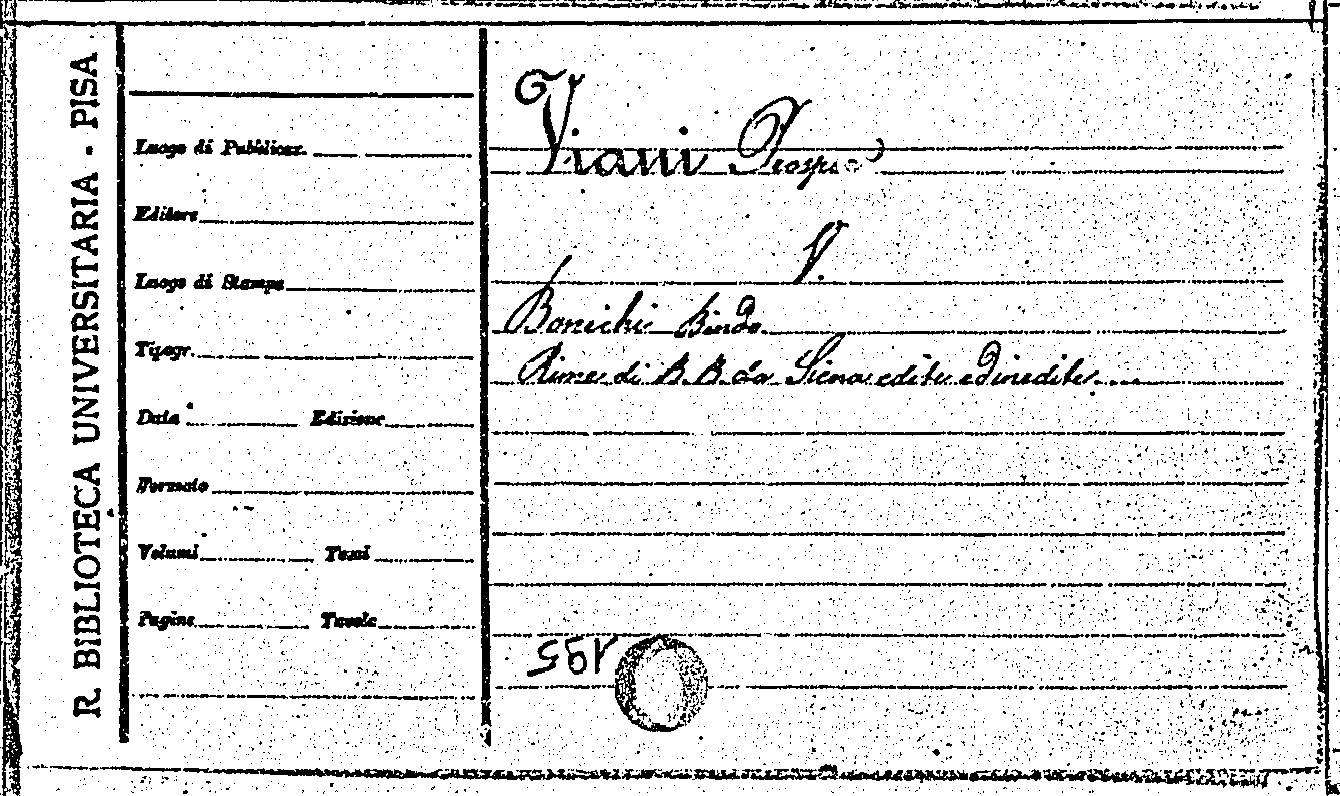 R. BIBLIOTECA UNIVERSITARIA - PISA
Luogo di Pubblicaz.
Editore
Luogo di Stampa
Tipogr.
Data Edizione
Formato
Volumi Tomi
Pagine Tavole
Viani Prospero
V.
Bonichi Bindo
Rime di B. B. da Siena edite ed inedite....